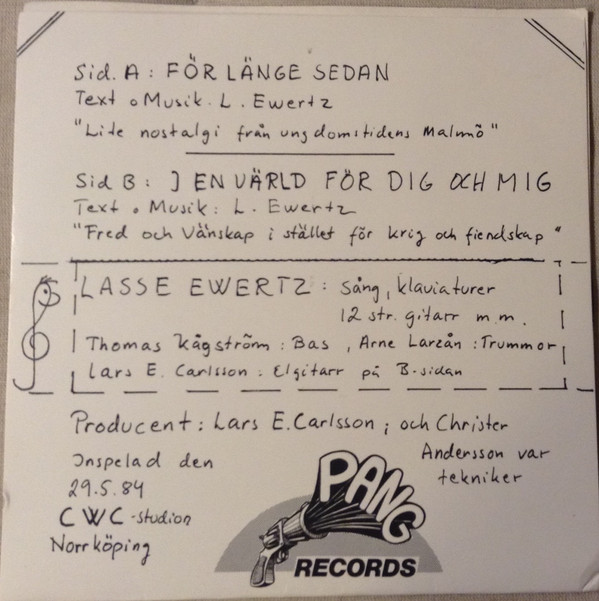 Sid. A : FÖR LÄNGE SEDAN
Text o Musik. L. Ewertz
"Lite nostalgi från ungdomstidens Malmö"
Sid B : I EN VÄRLD FÖR DIG OCH MIG
Text o Musik: L. Ewertz
"Fred och Vänskap i stället för krig och fiendskap"
LASSE EWERTZ : Sång, klaviaturer
12 str. gitarr m.m.
Thomas Kågström : Bas , Arne Larzån : Trummor
Lars E. Carlsson : Elgitarr på B-sidan
Producent : Lars E. Carlsson ; och Christer
Andersson var
tekniker
Inspelad den
29.5.84
CWC-studion
Norrköping
PANG
RECORDS